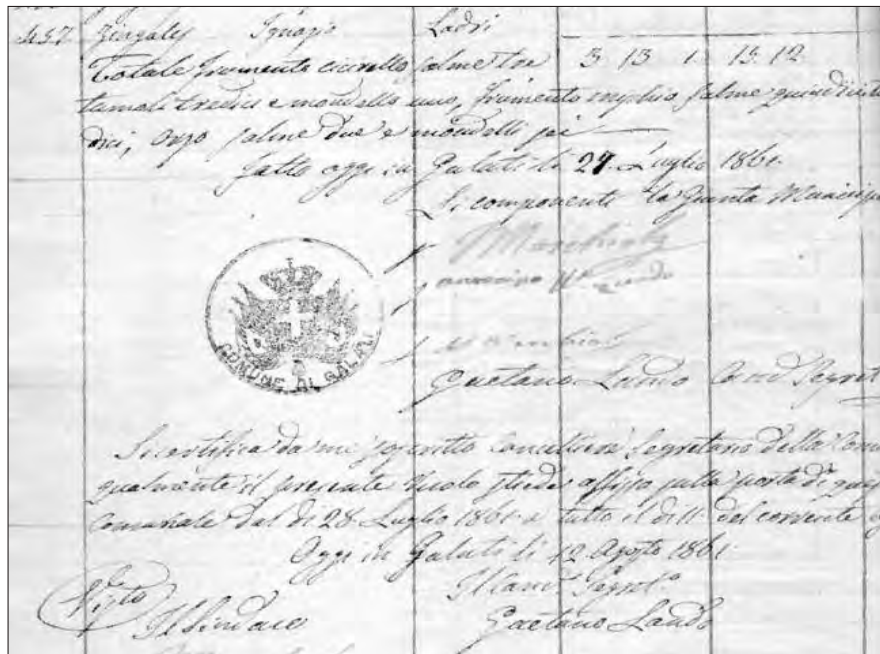 457 Zingales Ignazio Ladri
Totale frumento cicirello salme tre 3 13 1 15 12
tumoli tredici e mondello uno, frumento miglio salme quindici
dici, orzo salme due e mondelli sei
fatto oggi in Galati li 27 Luglio 1861
Li componenti la Giunta Municip
COMUNE AL GALATI
Gaetano Lando Segret
Si certifica da me Cancelliere Segretario della Comu
qualmente il presente Ruolo stiede affisso sulla porta di
Comunale dal dì 28 Luglio 1861 a tutto il dì 11 del corrente
Oggi in Galati li 12 Agosto 1861
Il Canc. Segret.
Visto
Il Sindaco
Gaetano Lando